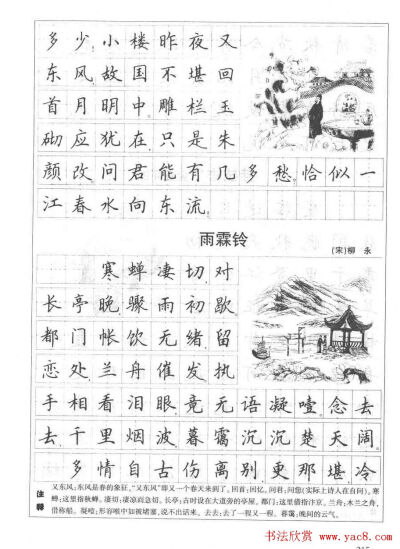 多少。小楼昨夜又
东风，故国不堪回
首月明中。雕栏玉
砌应犹在，只是朱
颜改。问君能有几多愁？恰似一
江春水向东流。
雨霖铃
(宋)柳 永
寒蝉凄切，对
长亭晚，骤雨初歇。
都门帐饮无绪，留
恋处、兰舟催发。执
手相看泪眼，竟无语凝噎。念去
去、千里烟波，暮霭沉沉楚天阔。
多情自古伤离别，更那堪、冷
注释
又东风：东风是春的象征，“又东风”即又一个春天来到了。回首：回忆。问君：问您(实际上诗人在自问)。寒
蝉：这里指秋蝉。凄切：凄凉而急切。长亭：古时设在大道旁的亭屋。都门：这里借指汴京。兰舟：木兰之舟，
借称船。凝噎：形容喉中如被堵塞，说不出话来。去去：去了一程又一程。暮霭：晚间的云气。
书法欣赏
www.yac8.com